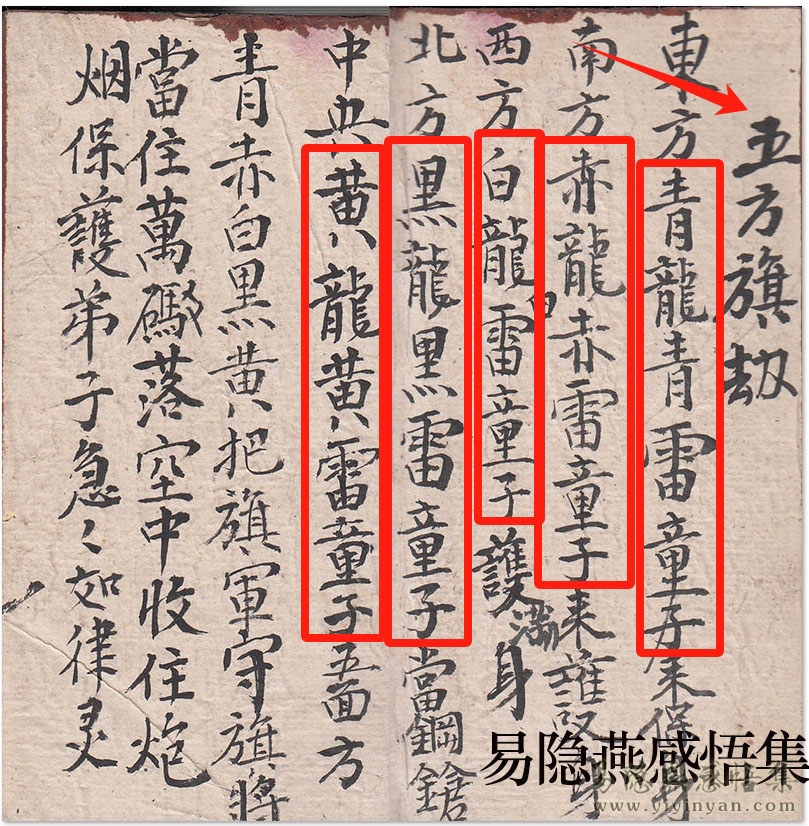 五方旗劫
東方青龍青雷童子来保身
南方赤龍赤雷童子来護身
西方白龍白雷童子護满身
北方黑龍黑雷童子當鋼鎗
中央黄龍黄雷童子五面方
青赤白黑黄把旗軍守旗將
當住萬砲落空中收住炮
烟保護弟子急〻如律灵
易隐燕感悟集
易隐燕感悟集
www.yiyinyan.com